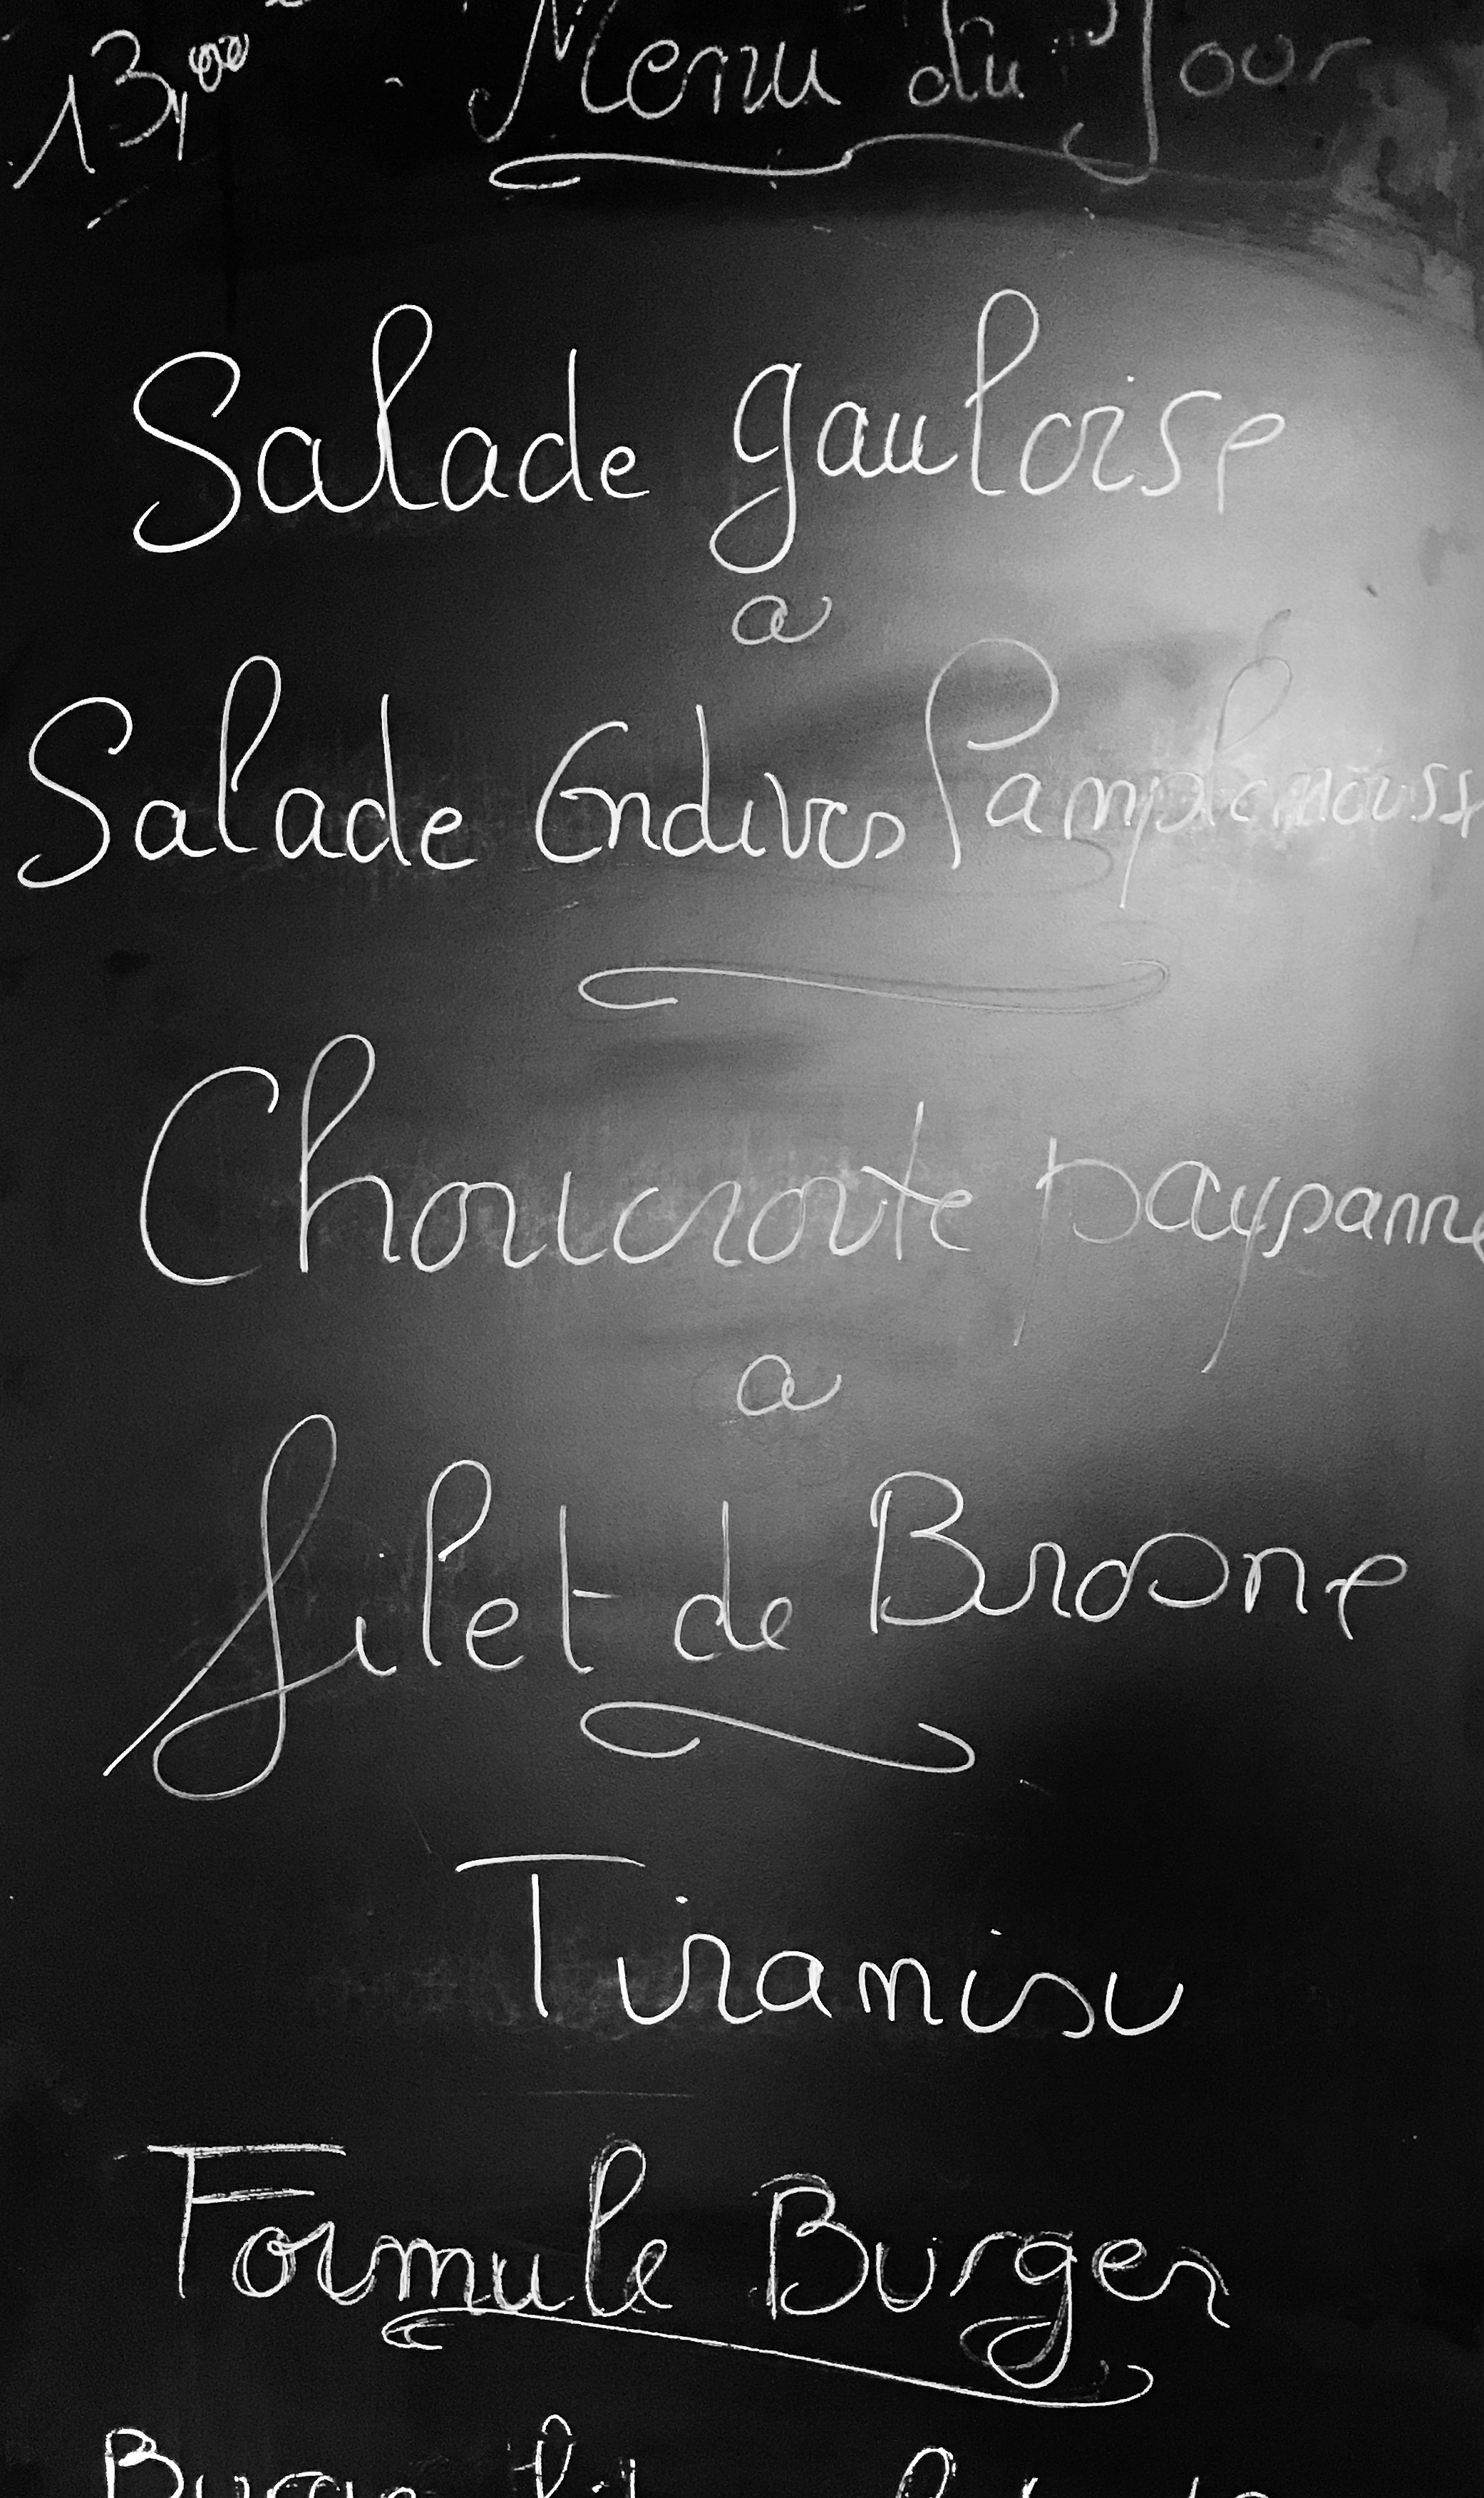 13,00 Menu du Jour
Salade gauloise
a
Salade Endives Pamplemousse
Choucroute paysanne
a
filet de Brosne
Tiramisu
Formule Burger